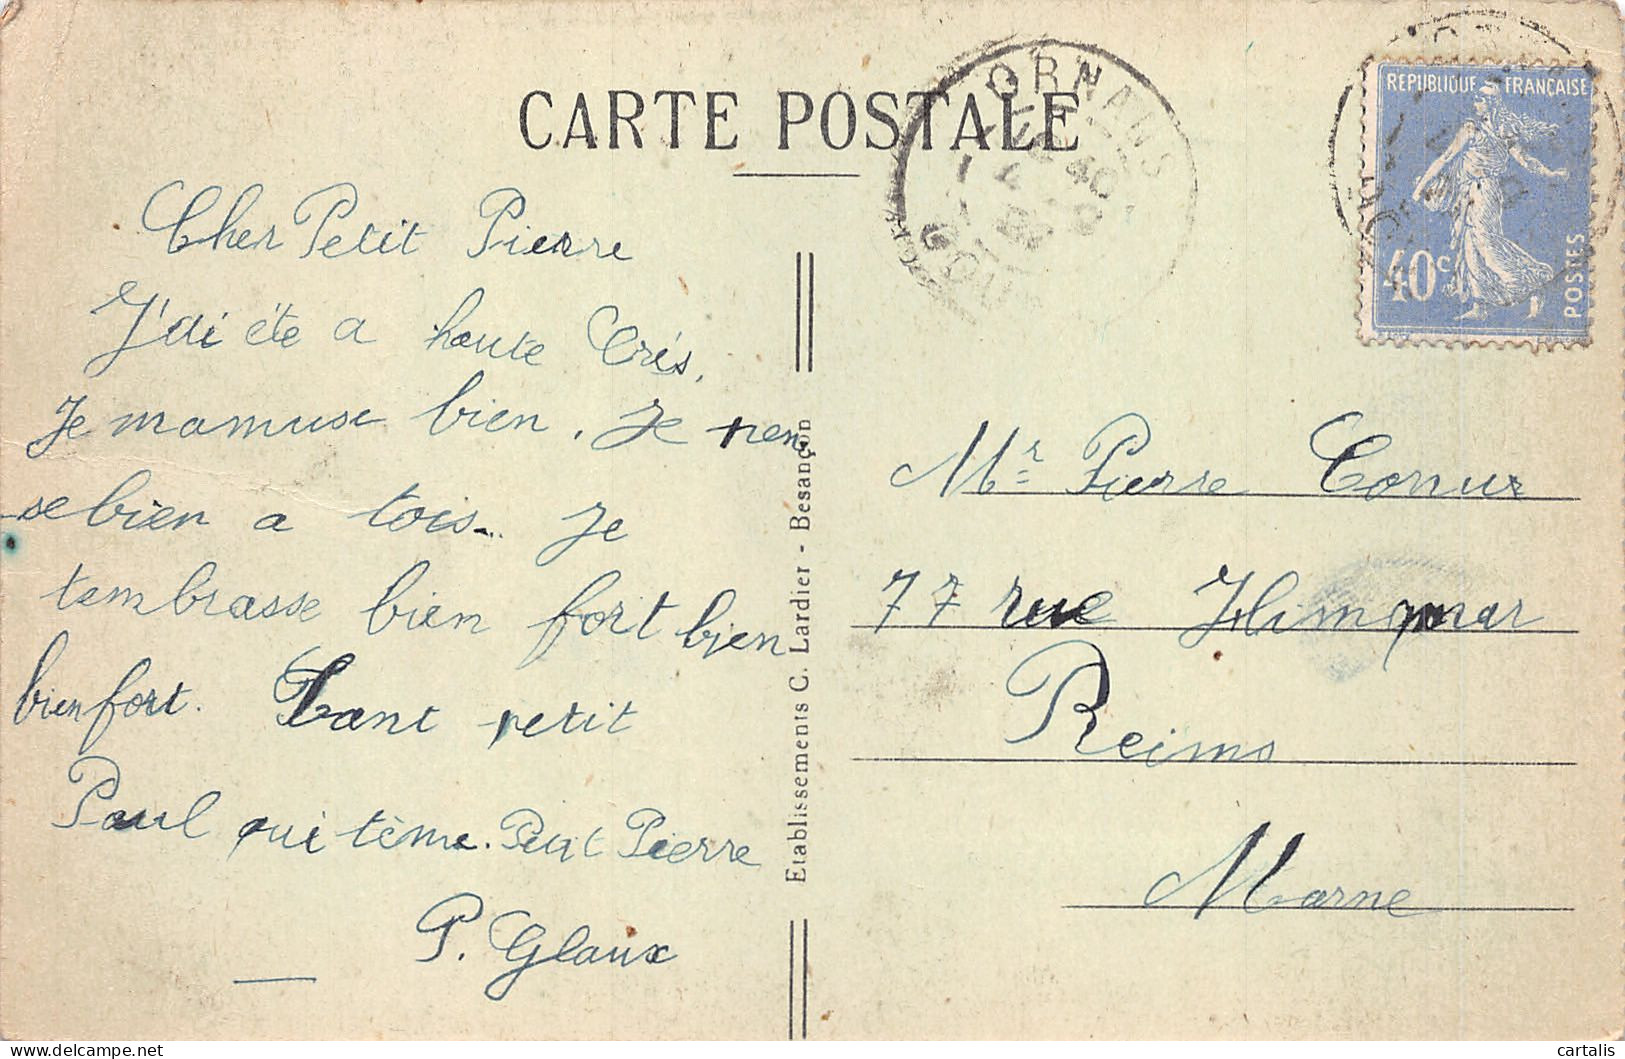 CARTE POSTALE
ORNANS
REPUBLIQUE FRANÇAISE
40c
POSTES
Cher Petit Pierre
J'ai éte a haute
Je mamuse bien. Je pen
-se bien a tois-. Je
tembrasse bien fort bien
bien fort. petit
Paul qui tème. Petit Pierre
P. Glaux
Etablissements C. Lardier - Besançon
Mr Pierre
77 rue Hinqmar
Reims
Marne
cartalis